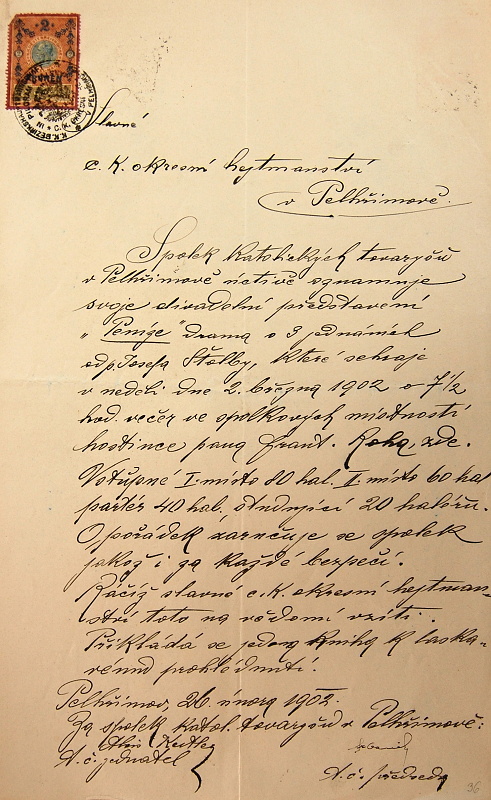 2
Slavné
c. K. okresní hejtmanství
v Pelhřimově.
Spolek Katolických tovaryšů
v Pelhřimově uctivě oznamuje
svoje divadelní představení
„Peníze" drama o 3 jednáních
od p. Josefa Štolby, které sehraje
v neděli dne 2. března 1902 o 7 1/2
hod. večer ve spolkových místností
hostince pana Frant. Roha, zde.
Vstupné I. místo 80 hal. II. místo 60 hal
partér 40 hal. studující 20 haléřů.
O pořádek zaručuje se spolek
jakož i za každé bezpečí.
Račiž slavné c. K. okresní hejtman-
ství toto na vědomí vzíti.
Přikládá se jedna Kniha K laska-
vému prohlédnutí.
Pelhřimov, 26. února 1902.
Za spolek Katol. tovaryšů v Pelhřimově:
t. č. jednatel
t. č. předseda
36